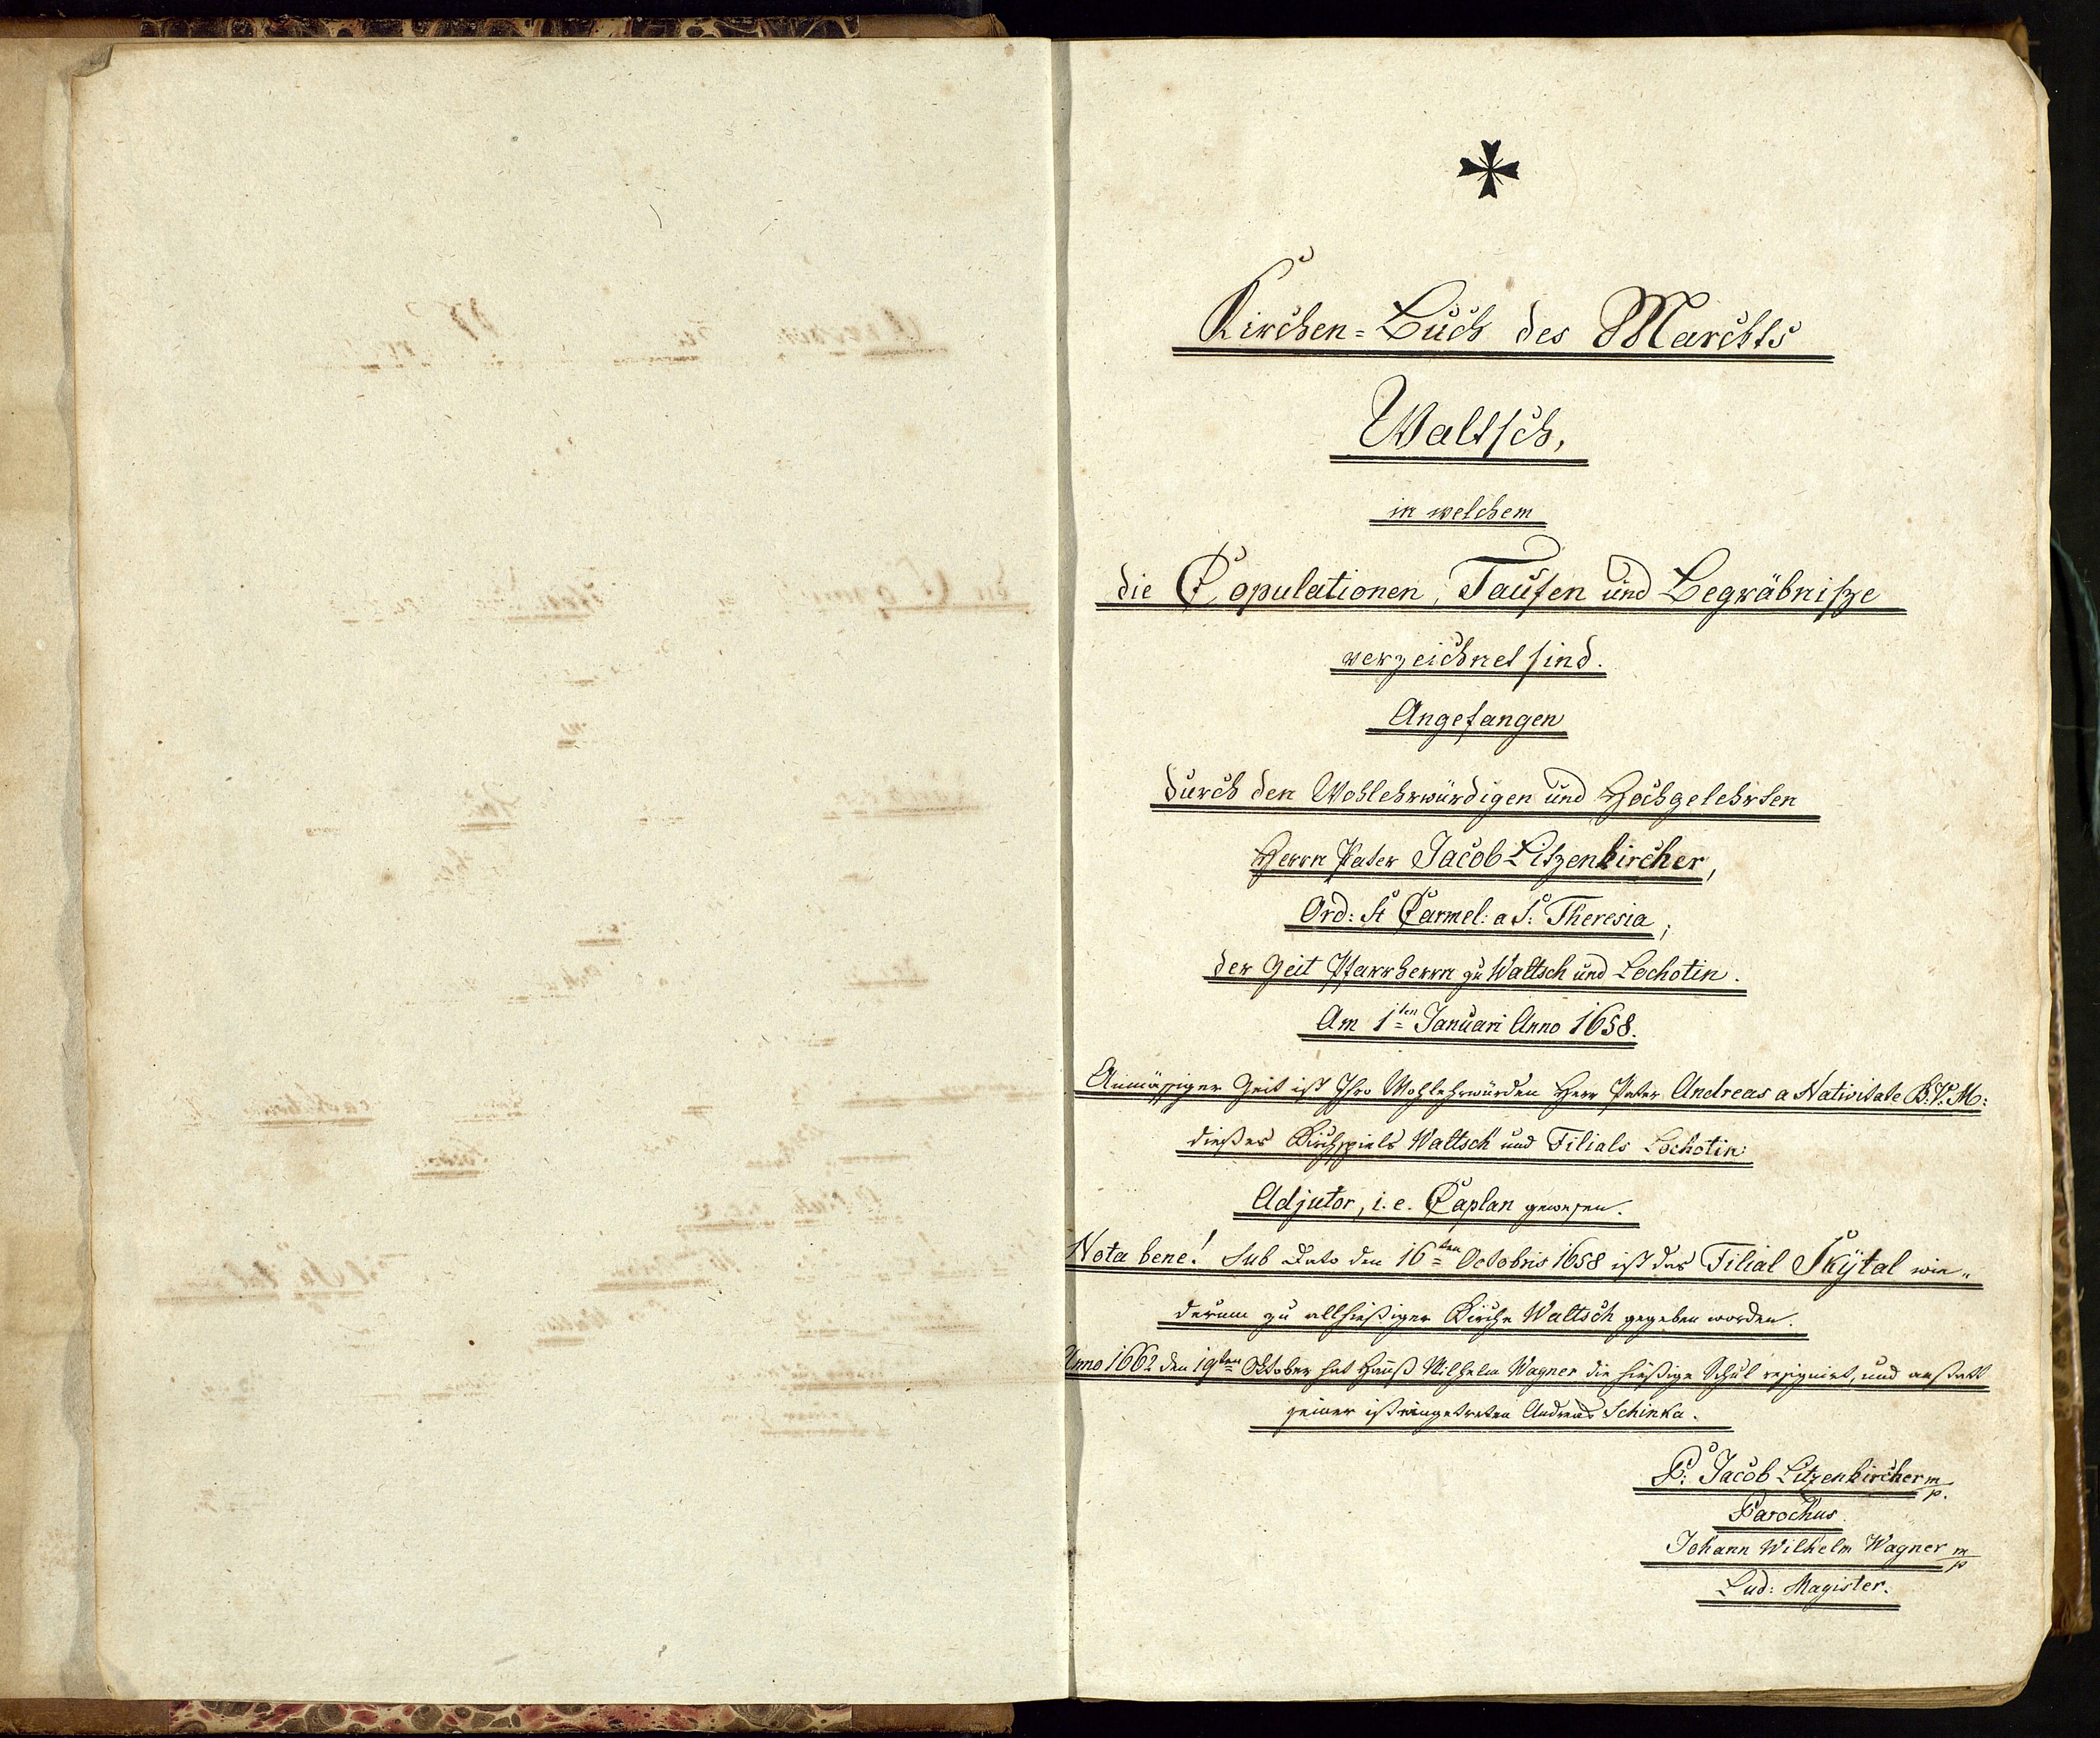 Kirchen=Buch des Marchts
Waltsch,
in welchem
die Copulationen, Taufen und Begräbniße
verzeichnet sind.
Angefangen
durch den Wohlehrwürdigen und Hochgelehrten
Herrn Pater Jacob Litzenkircher,
Ord: St Carmel: a S: Theresia,
der Zeit Pfarrherrn zu Waltsch und Lochotin.
Am 1ten Januari Anno 1658.
Zeit ist Ihro Wohlehrwürden Herr Pater Andreas a Nativitate B.V.M:
dießes Kirchspiels Waltsch und Filials Lochotin
Adjutor, i.e. Caplan gewesen.
Nota bene! Sub Dato den 16ten Octobris 1658 ist das Filial Skÿtal wie„
derum zu allhießiger Kirche Waltsch gegeben worden.
Anno 1662 den 19ten Oktober hat Hanß Wilhelm Wagner die hießige Schul resignirt, und anstatt
seiner ist eingetreten Andreas Schinka.
P: Jacob Litzenkircher m/p.
Parochus.
Johann Wilhelm Wagner m/p
Lud: Magister.